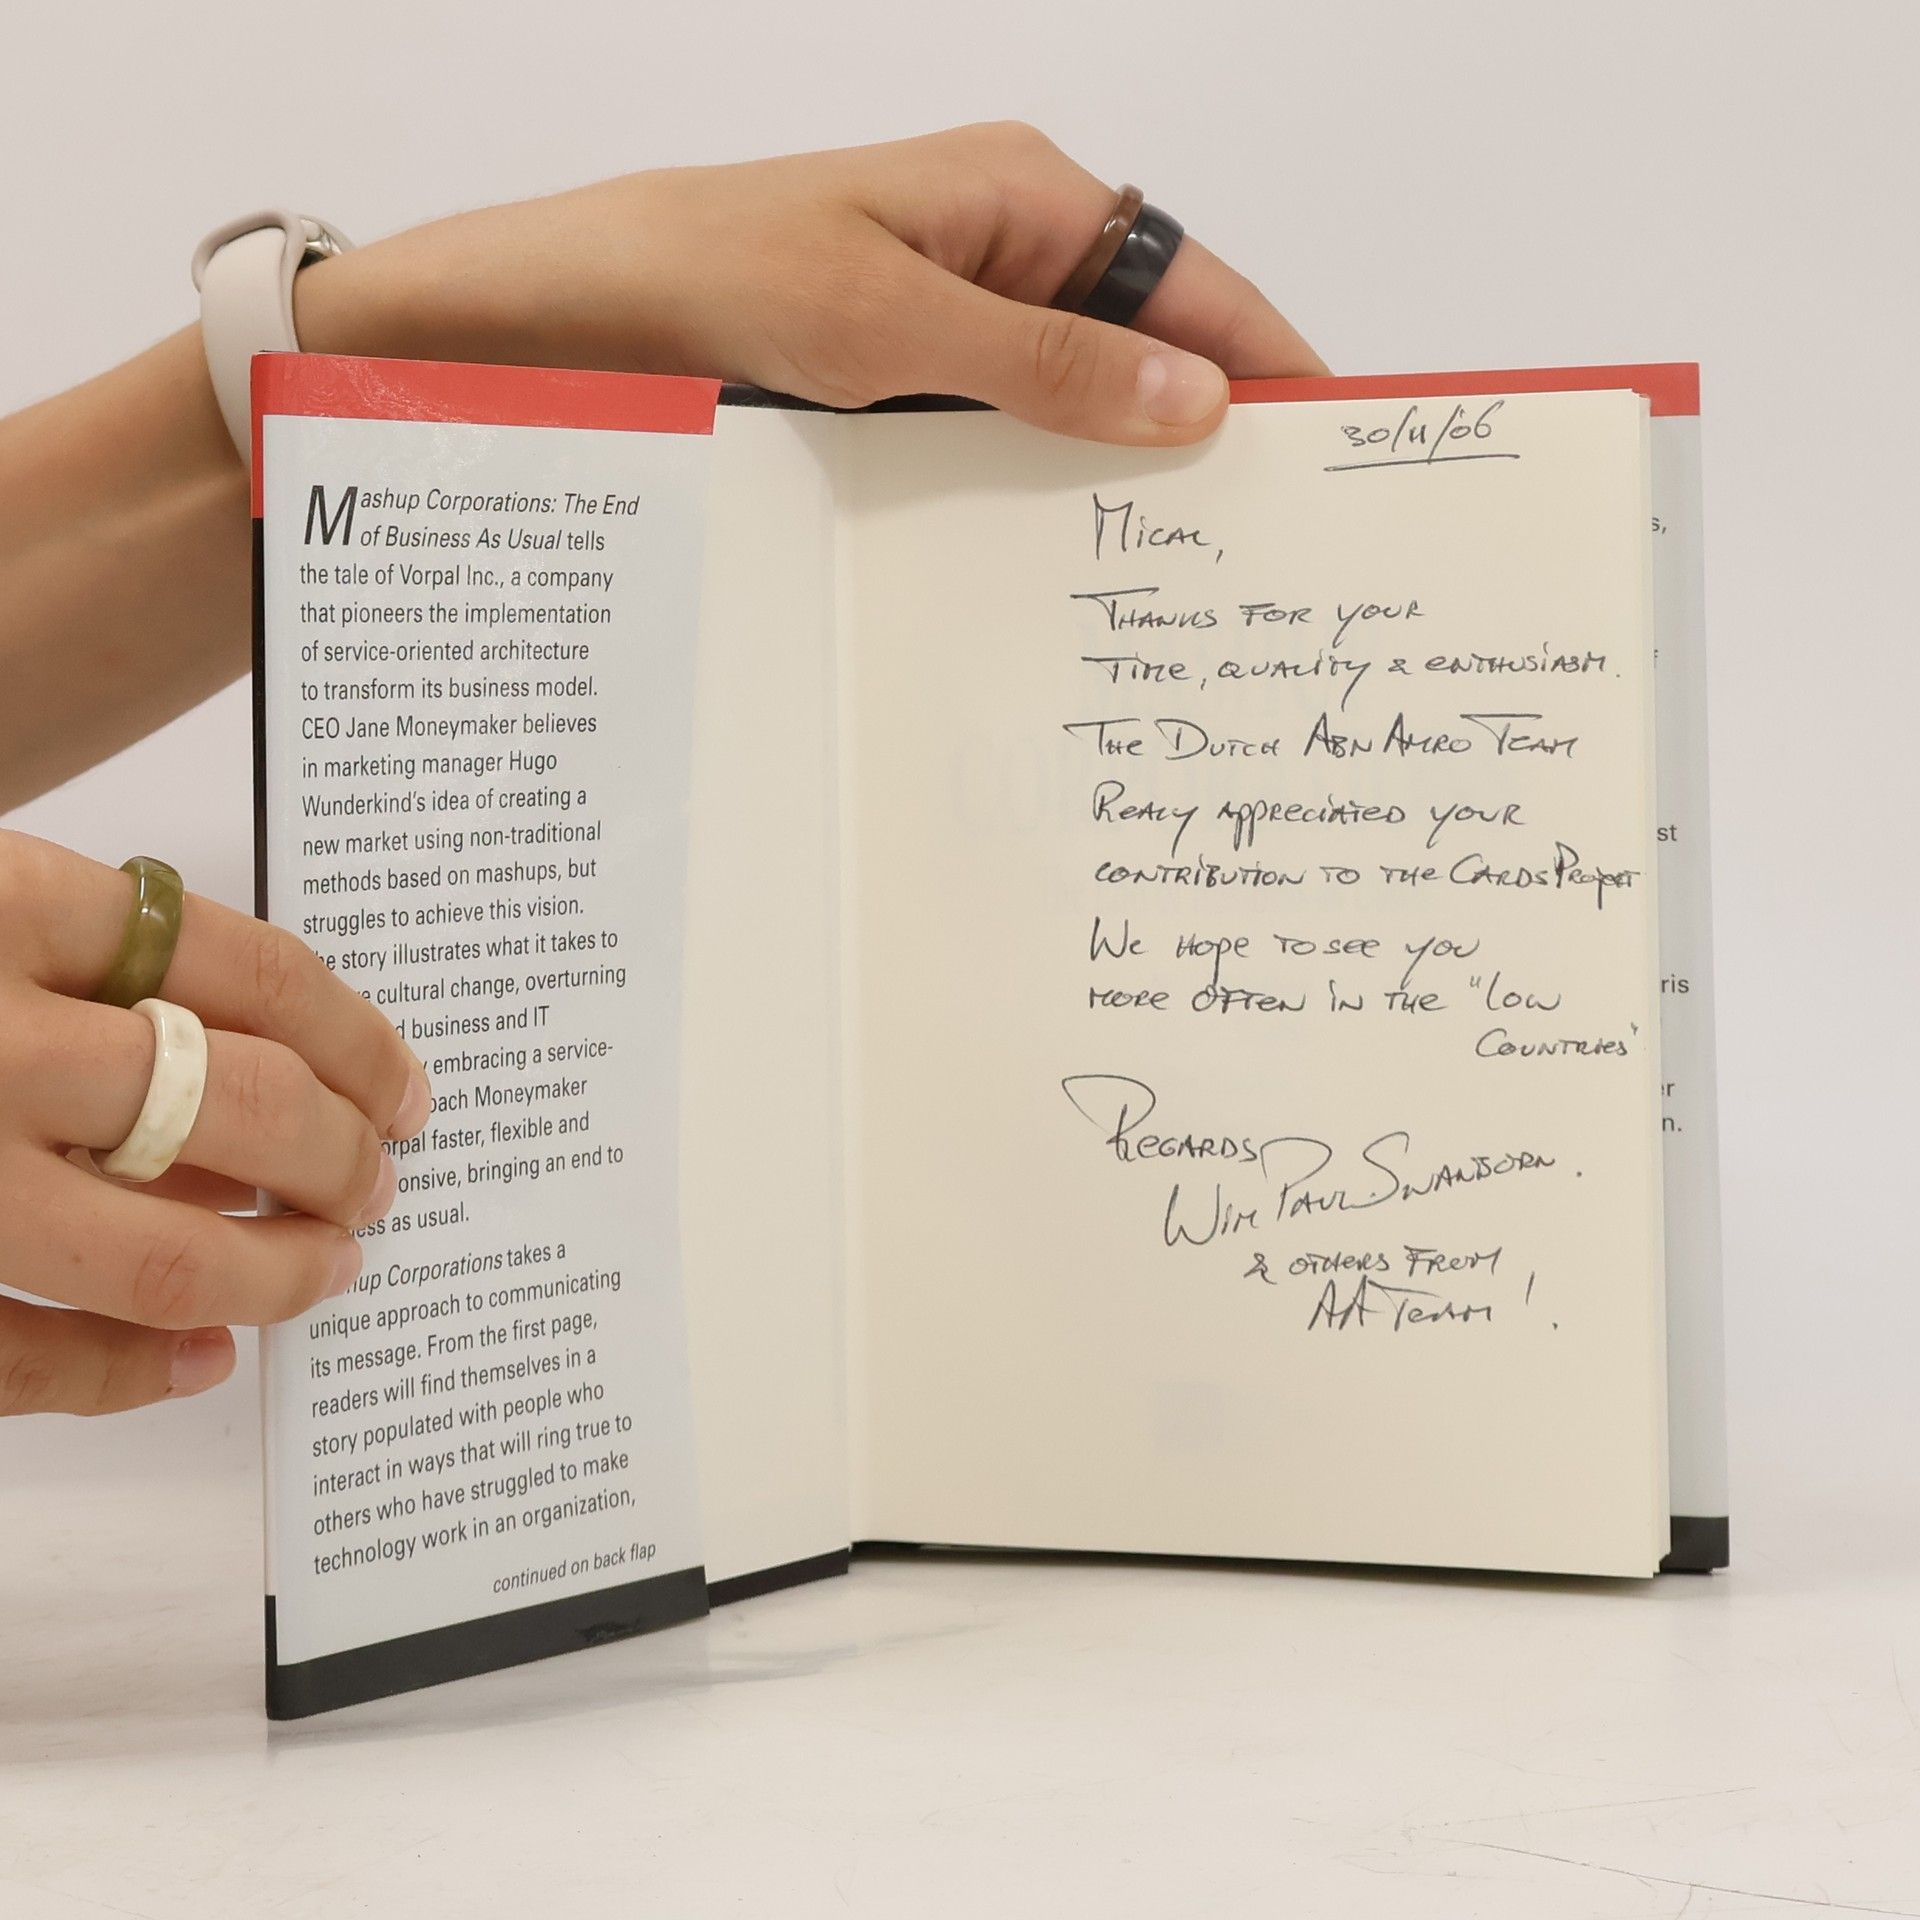 Mashup Corporations: The End
of Business As Usual tells
the tale of Vorpal Inc., a company
that pioneers the implementation
of service-oriented architecture
to transform its business model.
CEO Jane Moneymaker believes
in marketing manager Hugo
Wunderkind's idea of creating a
new market using non-traditional
methods based on mashups, but
struggles to achieve this vision.
he story illustrates what it takes to
e cultural change, overturning
d business and IT
y embracing a service-
oach Moneymaker
orpal faster, flexible and
onsive, bringing an end to
ess as usual.
hup Corporations takes a
unique approach to communicating
its message. From the first page,
readers will find themselves in a
story populated with people who
interact in ways that will ring true to
others who have struggled to make
technology work in an organization,
continued on back flap
30/11/06
Mical,
Thanks for your
Time, quality & enthusiasm.
The Dutch ABN Amro Team
Realy appreciated your
contribution to the Cards Project
We hope to see you
more often in the "Low
Countries"
Regards
Wim Paul Swanborn.
& others from
AA Team!
s,
f
st
ris
er
n.